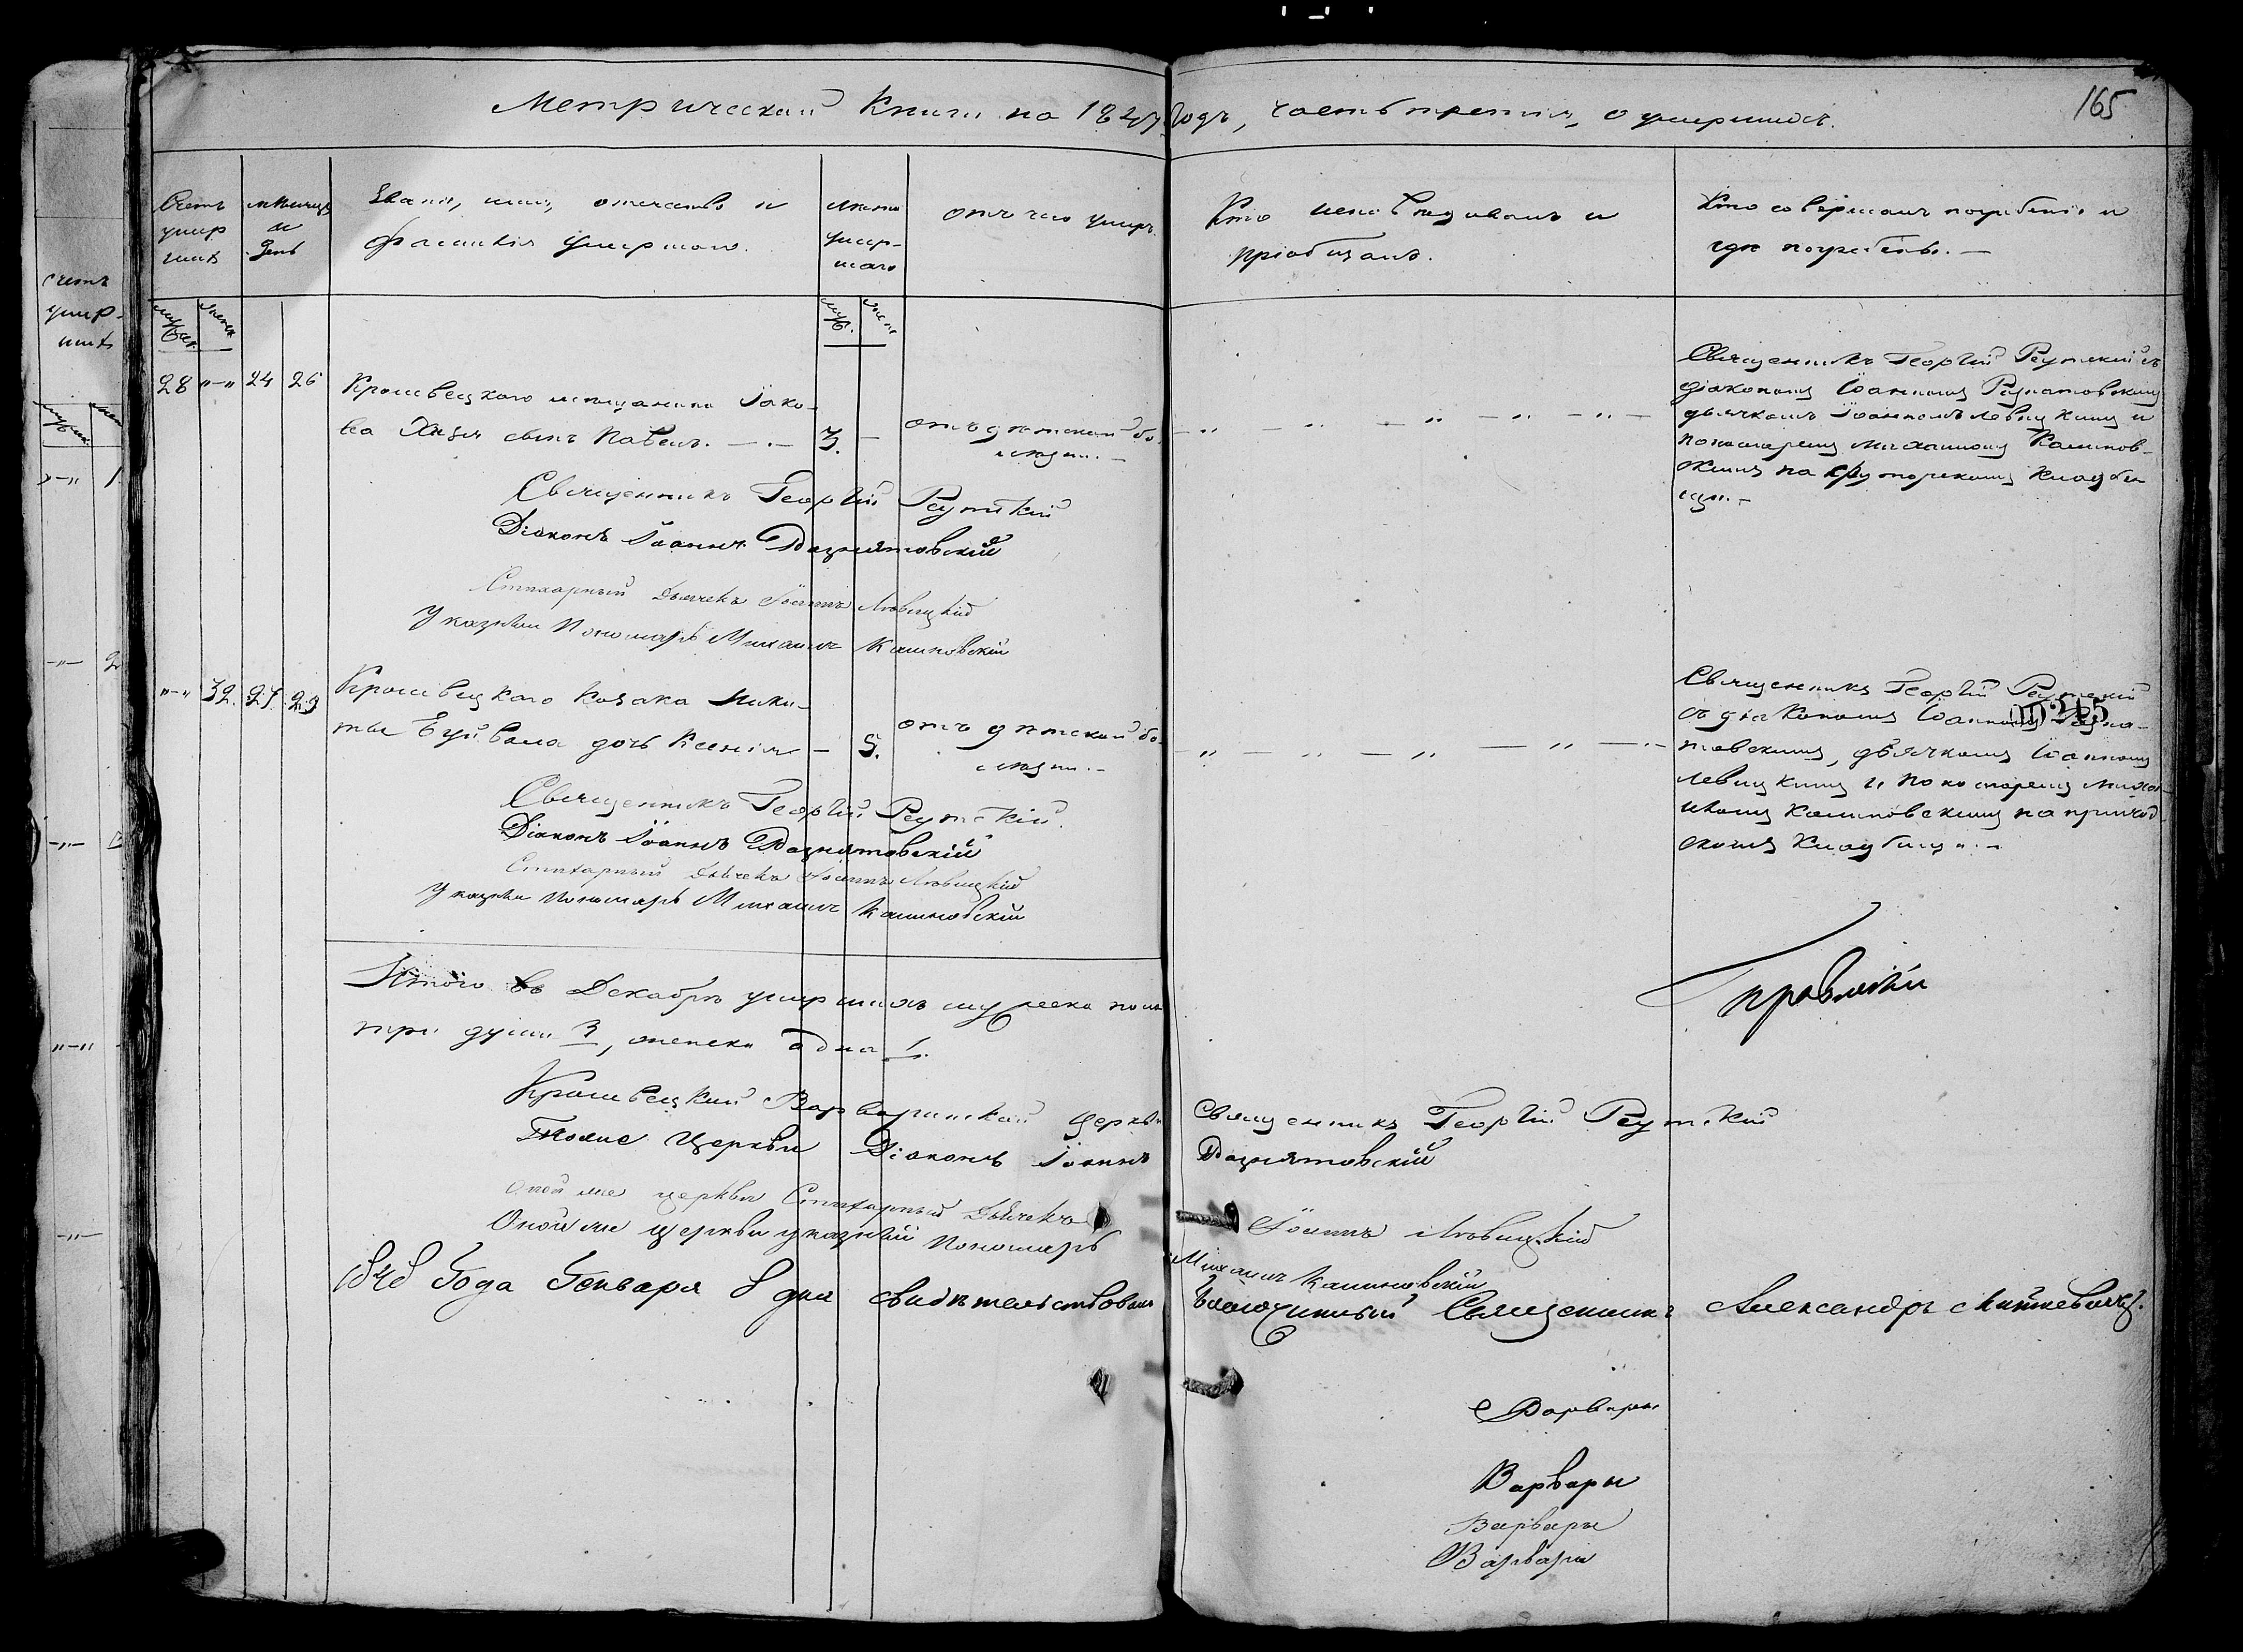 165
Метрической Книги на 1847 годъ, часть третія, о умершихъ.
Счетъ умершихъ
Мѣсяцъ и день
Званіе, имя, отчество и
фамилія умершаго.
Лѣта умер-
шаго
отъ чего умеръ.
Кто исповѣдывалъ и
пріобщалъ.
Кто совершалъ погребеніе и
гдѣ погребены. —
счетъ
умер-
шихъ
28 "–" 24 26
Кролевецкаго мещанина Іако-
ва сынъ Павелъ. — . — 3. —
отъ дѣтской бо-
лѣзни. —
Священникъ Георгій Реутскій съ
діакономъ Іоанномъ
дьячкомъ Іоанномъ Левицкимъ и
пономаремъ Михаиломъ Калинов-
скимъ на кладби
щѣ. –
Священникъ Георгій Реутскій
Діаконъ Іоаннъ Вознятовскій
Стихарный Дьячекъ Іоаннъ Левицкій
Указный Пономарь Михаилъ Калиновскій
"–" 32. 27. 29
Кролевецкаго Козака Ники-
ты дочь Ксенія — 5.
отъ дѣтской бо-
лѣзни. –
Священникъ Георгій Реутскій
съ діакономъ Іоанномъ
товскимъ, дьячкомъ Іоанномъ
Левицкимъ и пономаремъ Миха-
иломъ Калиновскимъ на приход-
скомъ кладбищѣ. –
00245
Священникъ Георгій Реутскій.
Діаконъ Іоаннъ Вознятовскій
Стихарный Дьячекъ Іоаннъ Левицкій
Указный Пономарь Михаилъ Калиновскій
Итого въ Декабрѣ умершихъ мужеска пола
три души 3, женска одна 1.
Кролевецкой Варваринской церкви Священникъ Георгій Реутскій
Тоеже Церкви Діаконъ Іоаннъ Вознятовскій
Оной же церкви Стихарный Дьячекъ Іоаннъ Левицкій
Оной же церкви указный Пономарь Михаилъ Калиновскій
1848 Года Генваря 8 дня свидѣтельствовалъ Благочинный Священникъ Александръ
Варвары
Варвары
Варвары
Варвары